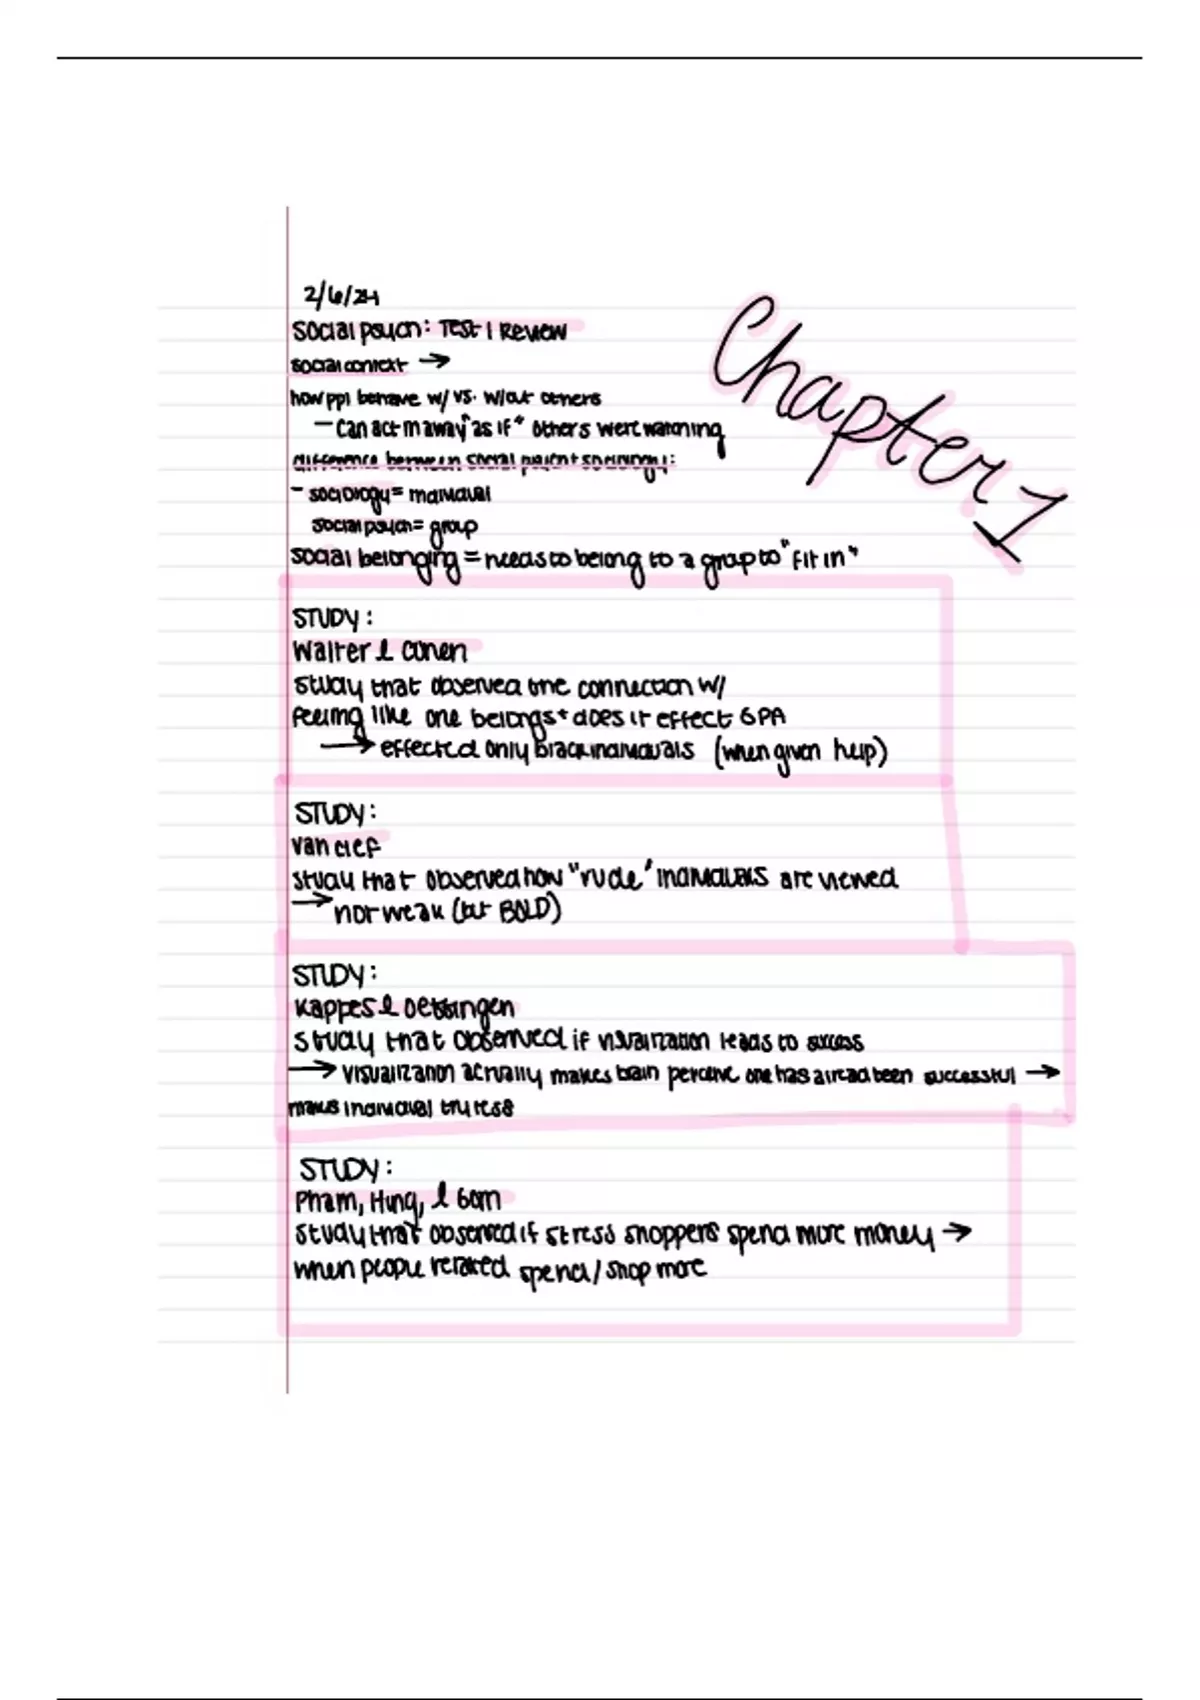 2/6/24
Chapter 1
Social psych: Test 1 Review
social context →
how ppl behave w/ vs. w/out others
— Can act in a way "as if" others were watching
difference between social psych + sociology:
- sociology = individual
social psych = group
social belonging = needs to belong to a group to "fit in"
STUDY:
Walter & Cohen
study that observed the connection w/
feeling like one belongs + does it effect GPA
→ effected only black individuals (when given help)
STUDY:
Van clef
study that observed how "rude" individuals are viewed
→ not weak (but BOLD)
STUDY:
Kappes & Oettingen
study that observed if visualization leads to success
→ visualization actually makes brain perceive one has alread been successful →
makes individual try less
STUDY:
Pham, Hung, & Gorn
study that observed if stress shoppers spend more money →
when people relaxed spend / shop more